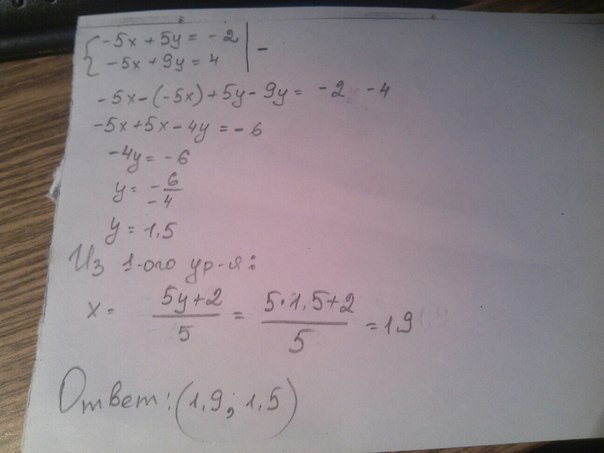 { -5x + 5y = -2 | -
-5x + 9y = 4
-5x-(-5x)+5y-9y = -2 -4
-5x+5x-4y = -6
-4y = -6
y = -6/-4
y = 1,5
Из 1-ого ур-я:
x = (5y+2)/5 = (5·1,5+2)/5 = 1,9
Ответ: (1,9; 1,5)